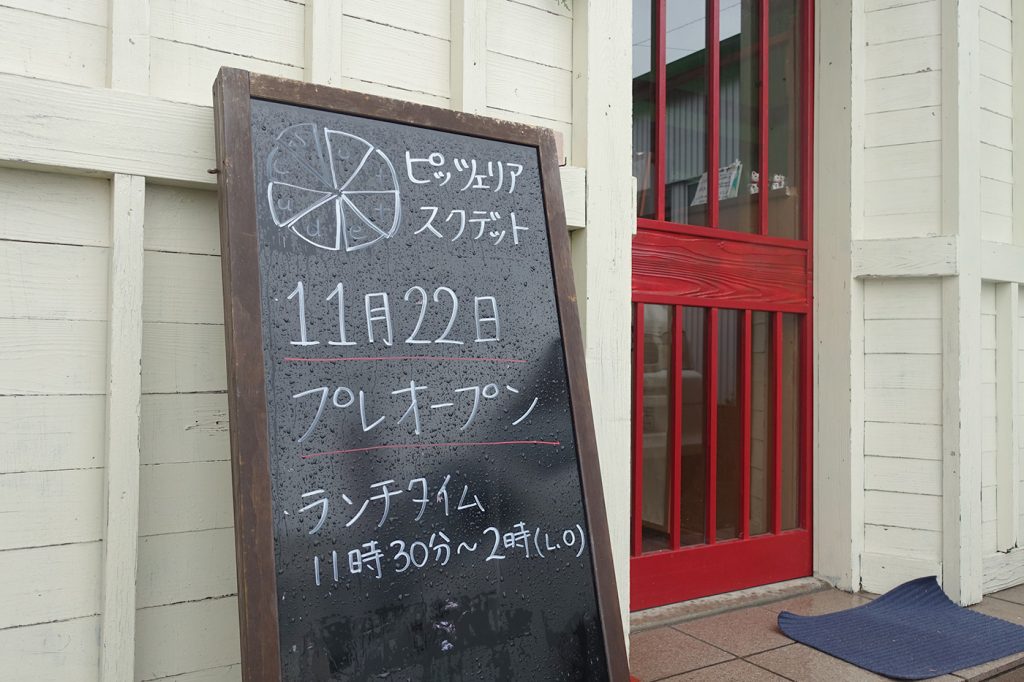 ピッツェリア
スクデット
11月22日
プレオープン
ランチタイム
11時30分～2時(L.O)